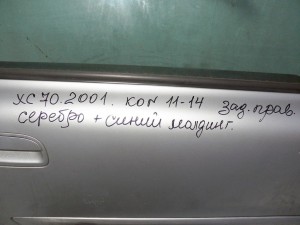 XC70.2001. KON 11-14 зад. прав.
серебро + синий молдинг.